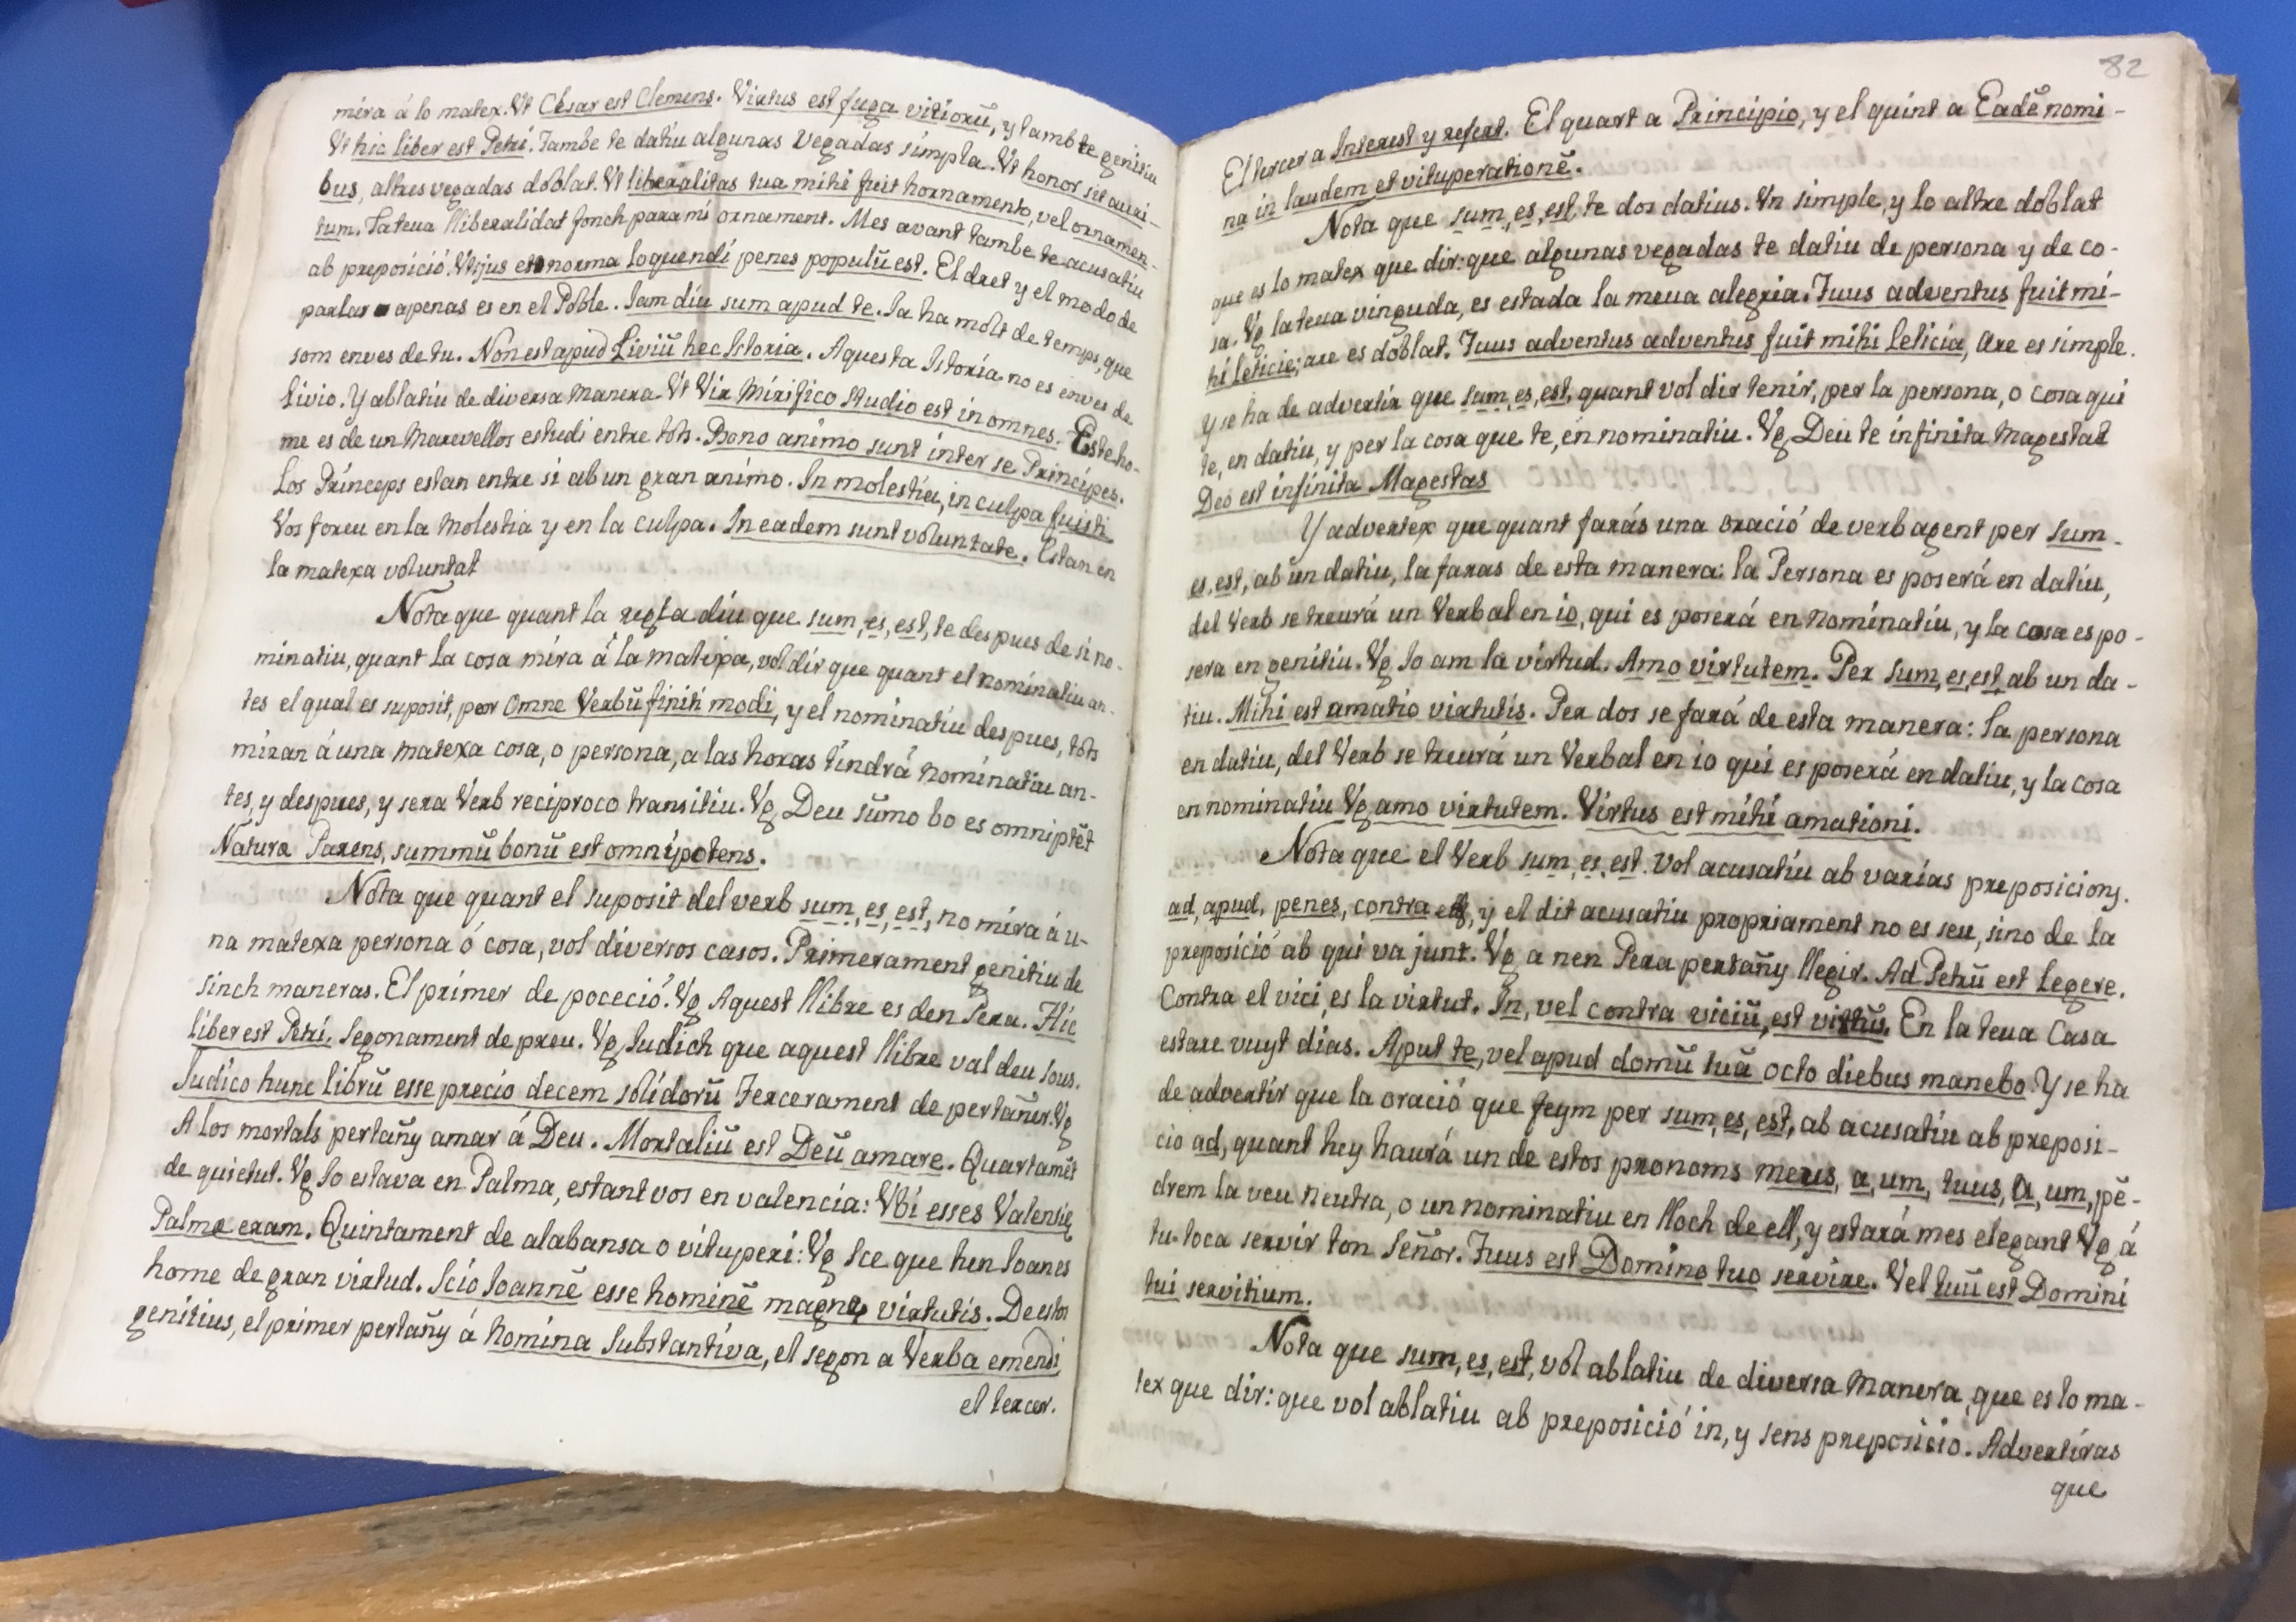 mira á lo matex. Vt Cesar est Clemens. Virtus est fuga vitiorũ, y tambte genitiu
Vt hic liber est Petri. Tambe te datiu algunas vegadas simpla. Vt honor sit auri-
bus, altres vegadas doblat. Vt liberalitas tua mihi fuit hornamento, vel ornamen-
tum. Sa teua lliberalidat fonch para mi ornament. Mes avant tambe te acusatiu
ab preposició. Vt jus et norma loquendi penes populũ est. El dret y el modo de
parlar apenas es en el Poble. Iam diu sum apud te. Ia ha molt de temps, que
som enves de tu. Non est apud Liviũ hec Istoria. Aquesta Istoria no es enves de
Livio. Y ablatiu de diversa manera Vt Vir Mirifico studio est in omnes. Este ho-
me es de un Maravellos estudi entre tots. Bono animo sunt inter se Principes.
Los Princeps estan entre si ab un gran animo. In molestia, in culpa fuisti
Vos foreu en la Molestia y en la culpa. In eadem sunt voluntate. Estan en
la matexa voluntat
Nota que quant la regla diu que sum, es, est, te despues de si no-
minatiu, quant la cosa mira á la matexa, vol dir que quant el nominatiu an-
tes el qual es suposit, per Omne Verbũ finiti modi, y el nominatiu despues, tots
miran á una matexa cosa, o persona, a las horas tindrá nominatiu an-
tes, y despues, y sera Verb reciproco transitiu. Vg Deu sũmo bo es omniptẽt
Natura Parens, summũ bonũ est omnipotens.
Nota que quant el suposit del verb sum, es, est, no mira á u-
na matexa persona ó cosa, vol diversos casos. Primerament genitiu de
sinch maneras. El primer de poceció. Vg Aquest llibre es den Pera. Hic
liber est Petri. Segonament de preu. Vg Iudich que aquest llibre val deu sous.
Iudico hunc librũ esse precio decem solidorũ Tercerament de pertañer. Vg
A los mortals pertañy amar á Deu. Mortaliũ est Deũ amare. Quartamẽt
de quietut. Vg Io estava en Palma, estant vos en valencia: Vbi esses Valensię
Palmę eram. Quintament de alabansa o vituperi: Vg Sce que hen Ioanes
home de gran virtud. Scio Ioannẽ esse hominẽ magnę virtutis. De estos
genitius, el primer pertañy á Nomina Substantiva, el segon a Verba emendi,
el tercer.
82
El tercer a Interest y refert. El quart a Principio, y el quint a Eadẽ nomi-
na in laudem et vituperationẽ.
Nota que sum, es, est, te dos datius. Vn simple, y lo altre doblat
que es lo matex que dir: que algunas vegadas te datiu de persona y de co-
sa. Vg la teua vinguda, es estada la meua alegria. Tuus adventus fuit mi-
hi leticie; are es doblat. Tuus adventus adventus fuit mihi leticia, Are es simple.
Y se ha de advertir que sum, es, est, quant vol dir tenir, per la persona, o cosa qui
te, en datiu, y per la cosa que te, en nominatiu. Vg Deu te infinita Magestat
Deo est infinita Magestas
Y advertex que quant farás una oració de verb agent per sum.
es, est, ab un datiu, la faras de esta manera: la Persona es poserá en datiu,
del Verb se treurá un Verbal en io, qui es poserá en Nominatiu, y la cosa es po-
sera en genitiu. Vg Io am la virtud. Amo virtutem. Per sum, es, est, ab un da-
tiu. Mihi est amatio virtutis. Per dos se fará de esta manera: la persona
en datiu, del Verb se treurá un Verbal en io qui es poserá en datiu, y la cosa
en nominatiu Vg amo virtutem. Virtus est mihi amationi.
Nota que el Verb sum, es, est. Vol acusatiu ab varias preposicions.
ad, apud, penes, contra, y el dit acusatiu propriament no es seu, sino de la
preposició ab qui va junt. Vg a nen Pera pertañy llegir. Ad Petrũ est legere.
Contra el vici, es la virtut. In, vel contra viciũ, est virtus. En la teua Casa
estare vuyt dias. Aput te, vel apud domũ tuã octo diebus manebo. Y se ha
de advertir que la oració que feym per sum, es, est, ab acusatiu ab preposi-
cio ad, quant hey haurá un de estos pronoms meus, a, um, tuus, a, um, pẽ-
drem la veu Neutra, o un nominatiu en lloch de ell, y estará mes elegant Vg á
tu toca servir ton Señor. Tuus est Domino tuo servire. Vel tuũ est Domini
tui servitium.
Nota que sum, es, est, vol ablatiu de diversa Manera, que es lo ma-
tex que dir: que vol ablatiu ab preposició in, y sens preposicio. Advertiras
que